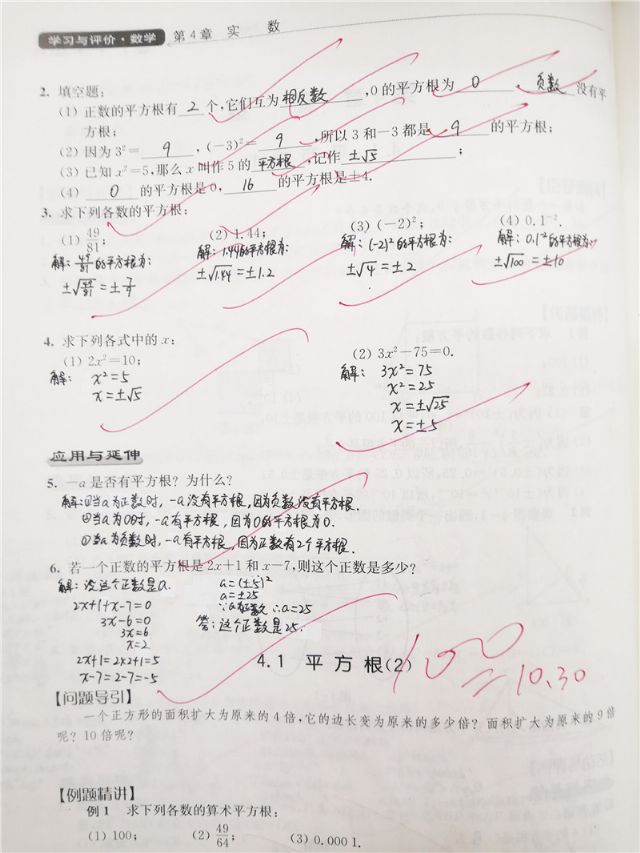 学习与评价·数学 第4章 实 数
2. 填空题:
(1) 正数的平方根有 2 个,它们互为 相反数 ,0的平方根为 0 负数 没有平
方根;
(2) 因为3²= 9 ,(-3)²= 9 ,所以3和-3都是 9 的平方根;
(3) 已知x²=5,那么x叫作5的 平方根 ,记作 ±√5 ;
(4) 0 的平方根是0, 16 的平方根是±4.
3. 求下列各数的平方根:
(1) 49/81; (2) 1.44; (3) (-2)²; (4) 0.1⁻².
解:49/81的平方根为: 解:1.44的平方根为: 解:(-2)²的平方根为: 解:0.1⁻²的平方根为:
±√49/81=±7/9 ±√1.44=±1.2 ±√4=±2 ±√100=±10
4. 求下列各式中的x:
(1) 2x²=10; (2) 3x²-75=0.
解: x²=5 解: 3x²=75
x=±√5 x²=25
x=±√25
x=±5
应用与延伸
5. -a是否有平方根?为什么?
解:①当a为正数时,-a没有平方根,因为负数没有平方根.
②当a为0时,-a有平方根,因为0的平方根为0.
③当a为负数时,-a有平方根,因为正数有2个平方根.
6. 若一个正数的平方根是2x+1和x-7,则这个正数是多少?
解:设这个正数是a. a=(±5)²
2x+1+x-7=0 a=±25
3x-6=0 ∵a为正数 ∴a=25
3x=6 答:这个正数是25.
x=2
2x+1=2×2+1=5
x-7=2-7=-5
100
10.30
4.1 平方根(2)
【问题导引】
一个正方形的面积扩大为原来的4倍,它的边长变为原来的多少倍?面积扩大为原来的9倍
呢?10倍呢?
【例题精讲】
例1 求下列各数的算术平方根:
(1) 100; (2) 49/64; (3) 0.000 1.